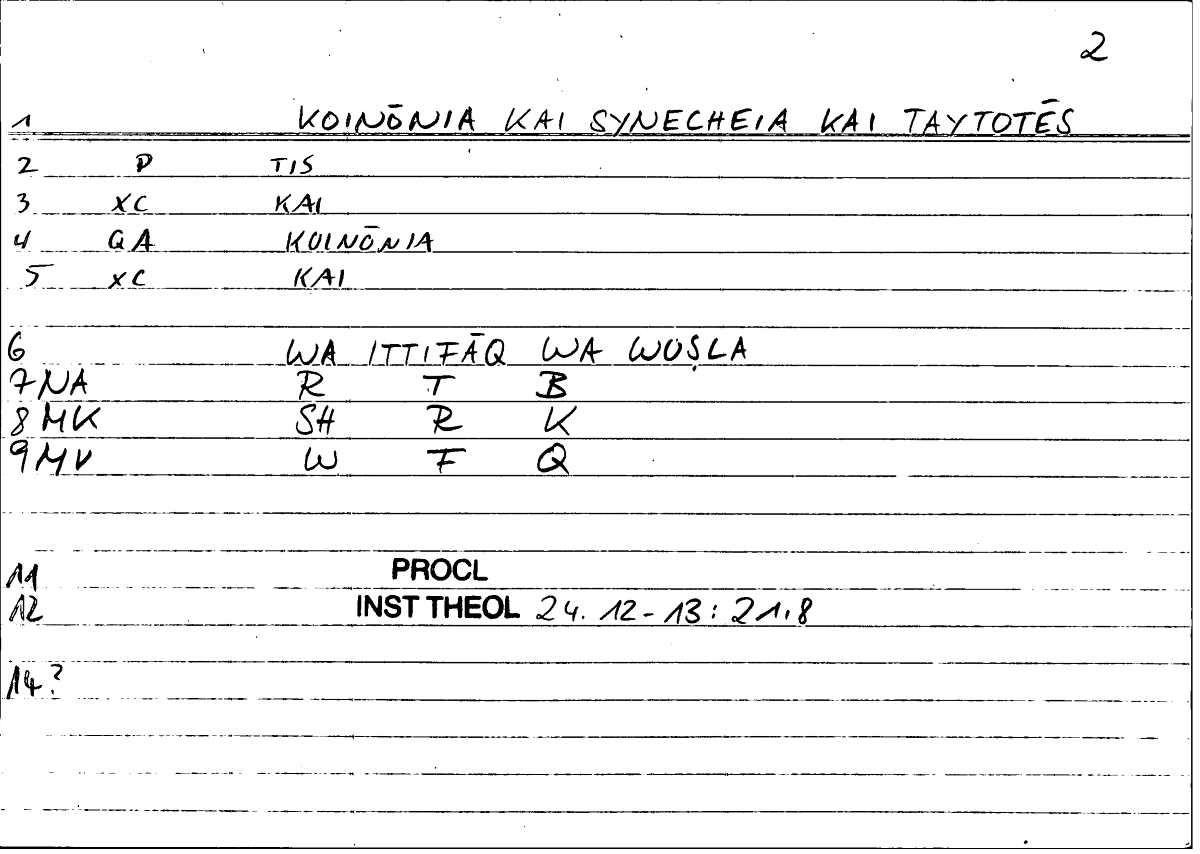 2
1 KOINŌNIA KAI SYNECHEIA KAI TAYTOTĒS
2 P TIS
3 XC KAI
4 QA KOINŌNIA
5 XC KAI
6 WA ITTIFĀQ WA WUṢLA
7 NA R T B
8 MK SH R K
9 MV W F Q
11 PROCL
12 INST THEOL 24.12-13:21,8
14?